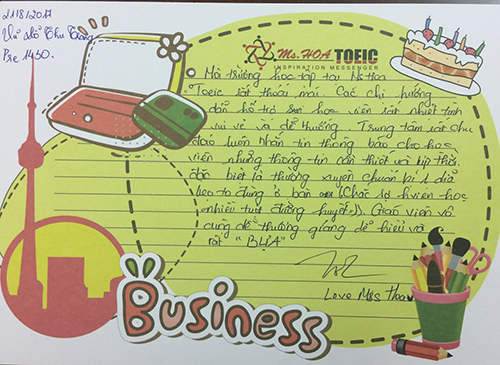 21/8/2017
Vũ Đỗ Thu
Pre 1450.
Ms. HOA TOEIC
INSPIRATION MESSENGER
Môi trường học tập tại Ms Hoa
Toeic rất thoải mái. Các chị hướng
dẫn hỗ trợ học viên rất nhiệt tình
vui vẻ và dễ thương. Trung tâm rất chu
đáo luôn nhắn tin thông báo cho học
viên những thông tin cần thiết và kịp thời.
đặc biệt là thường xuyên chuẩn bị 1 dĩa
kẹo to đùng ở bàn (Chắc sợ hviên học
nhiều tụt đường huyết:)). Giáo viên vô
cùng dễ thương giảng dễ hiểu và
rất "BỰA"
Love Mss Hoa
Business